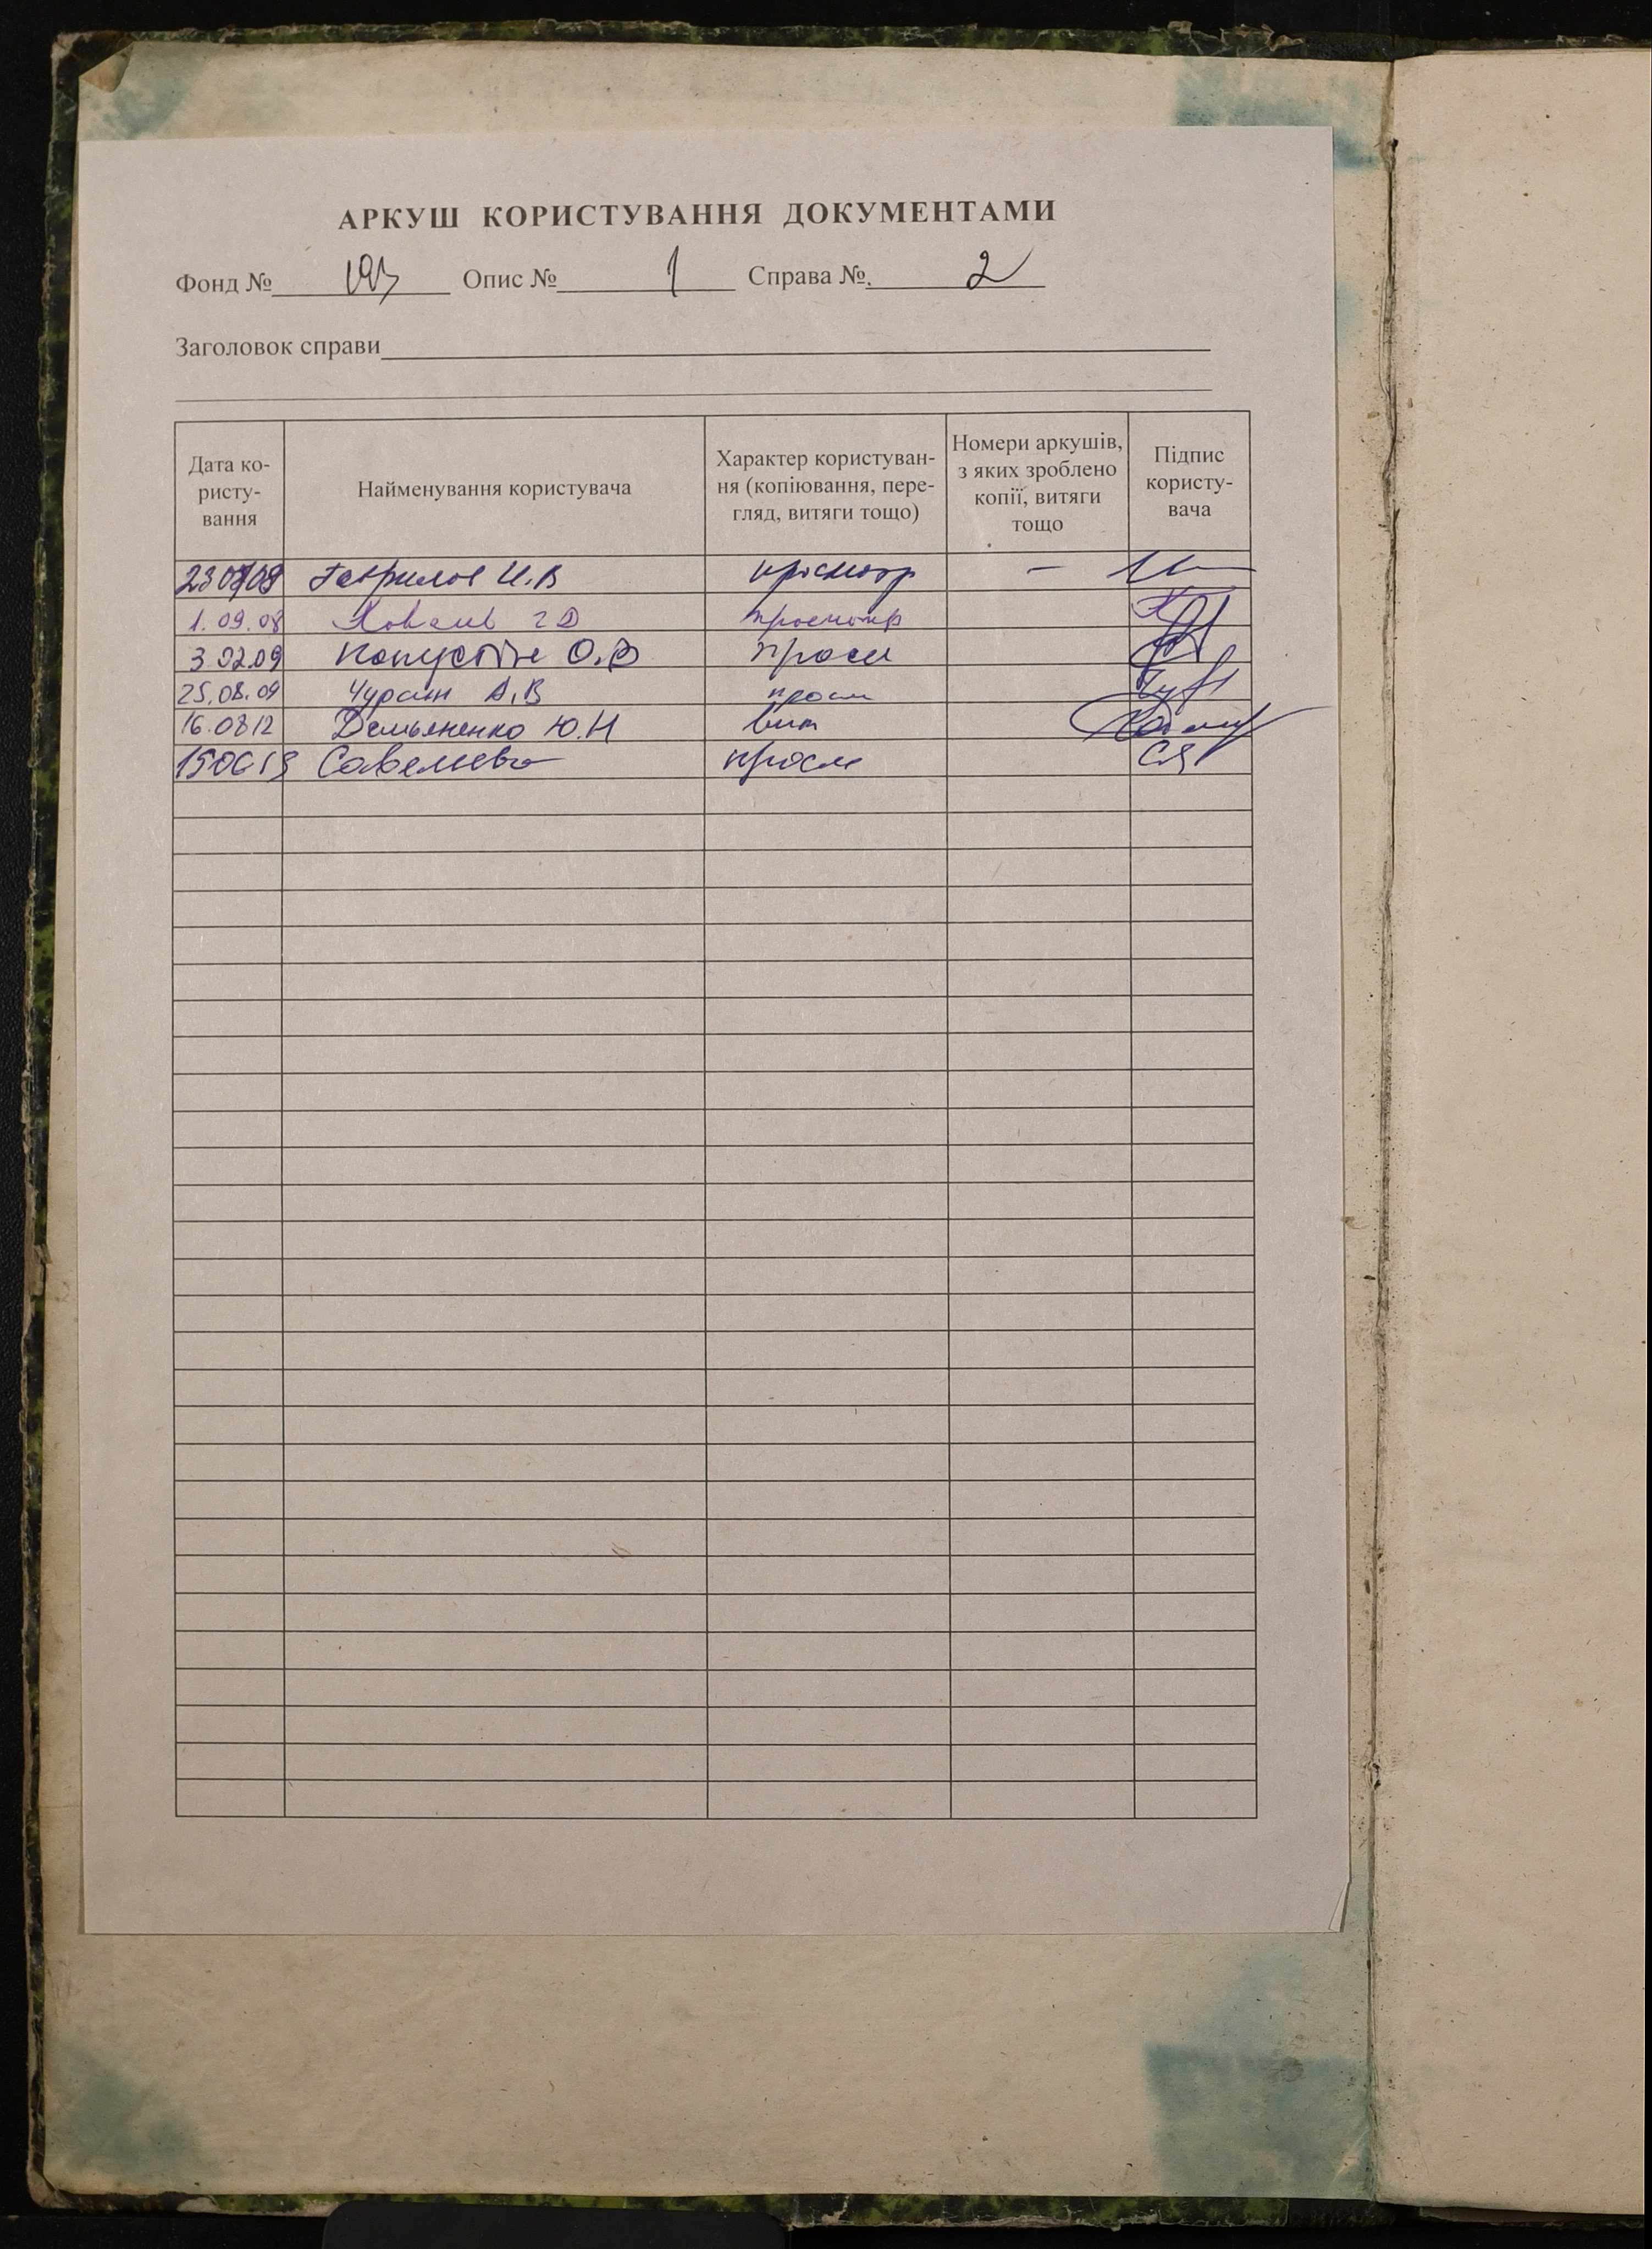 АРКУШ КОРИСТУВАННЯ ДОКУМЕНТАМИ
Фонд № 193 Опис № 1 Справа №. 2
Заголовок справи
Дата ко-
ристу-
вання
Найменування користувача
Характер користуван-
ня (копіювання, пере-
гляд, витяги тощо)
Номери аркушів,
з яких зроблено
копії, витяги
тощо
Підпис
користу-
вача
Гаврилов И.В просмотр —
1.09.08 Коваль Г Д просмотр
3.02.09 Капустін О.В просм
25.08.09 Чураш А.В просм
16.08 12 Демьяненко Ю.Н вит
Савельева просм